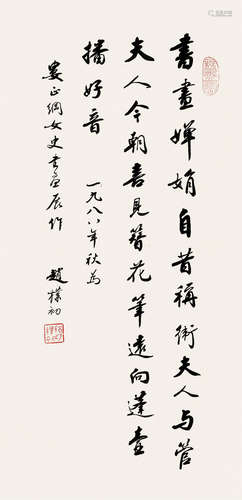 書畫嬋娟自昔稱衛夫人與管
夫人今朝喜見簪花筆遠向蓬壺
播好音 一九八八年秋為
婁正綱女史書畫展作
趙樸初